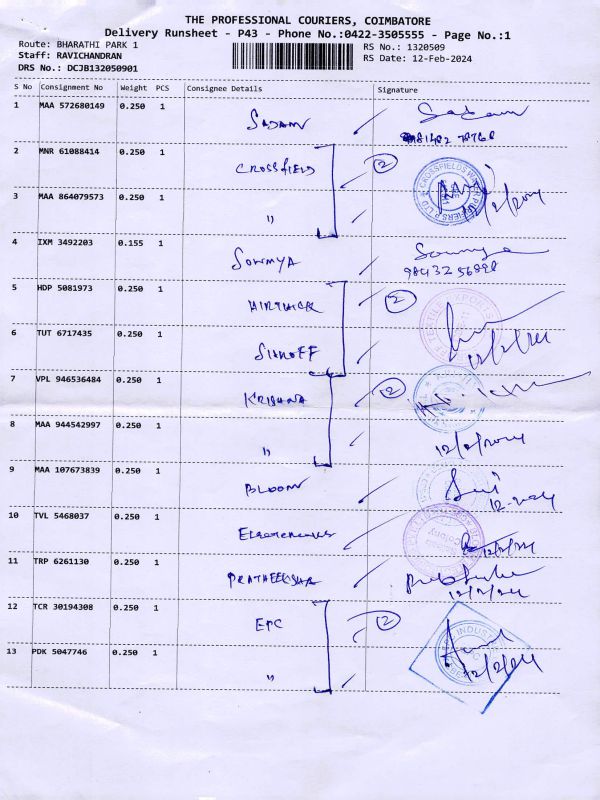 THE PROFESSIONAL COURIERS, COIMBATORE
Delivery Runsheet - P43 - Phone No.:0422-3505555 - Page No.:1
Route: BHARATHI PARK 1
RS No.: 1320509
Staff: RAVICHANDRAN
RS Date: 12-Feb-2024
DRS No.: DCJB132050901
S No Consignment No Weight PCS Consignee Details Signature
1 MAA 572680149 0.250 1 SADAM Sadam
2 MNR 61088414 0.250 1 CROSSFIELD 2
3 MAA 864079573 0.250 1 " 12/2/2024
CROSSFIELDS WATER PURIFIERS P LTD
4 IXM 3492203 0.155 1 SOWMYA Sowmya
5 HDP 5081973 0.250 1 HIRTHICK 2
6 TUT 6717435 0.250 1 12/2/24
7 VPL 946536484 0.250 1 KRISHNA 2
8 MAA 944542997 0.250 1 " 12/2/2024
9 MAA 107673839 0.250 1 BLOOM
10 TVL 5468037 0.250 1 12/2/24
11 TRP 6261130 0.250 1 PRATHEEKSHA
12/2/24
12 TCR 30194308 0.250 1 EPC 2
13 PDK 5047746 0.250 1 " 12/2/24